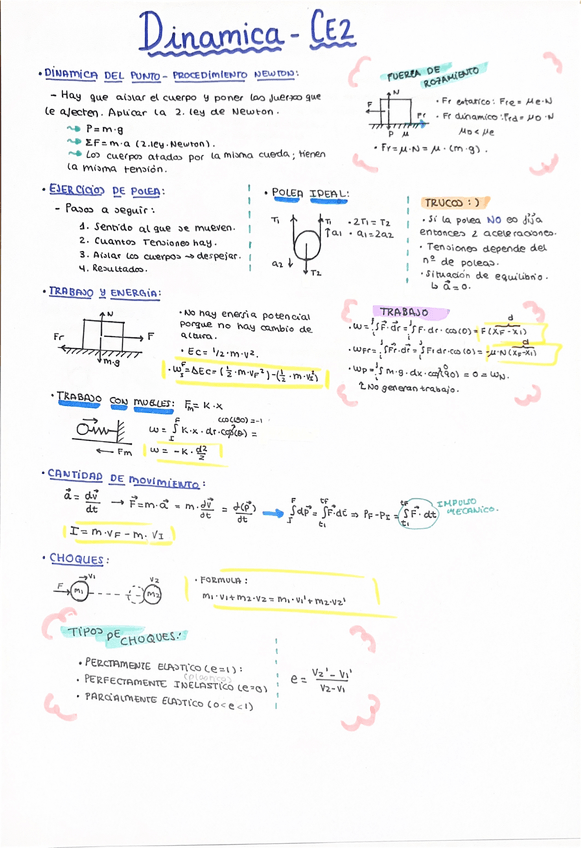 Dinamica - CE2
• DINAMICA DEL PUNTO - PROCEDIMIENTO NEWTON:
- Hay que aislar el cuerpo y poner las fuerzas que
le afecten. Aplicar la 2. ley de Newton.
P = m·g
ΣF = m·a (2.ley.Newton).
Los cuerpos atados por la misma cuerda; tienen
la misma tensión.
FUERZA DE
ROZAMIENTO
N
F
Fr
P μ
• Fr estatico: Fre = μe·N
• Fr dinamico: Frd = μD·N
μD < μe
• Fr = μ·N = μ·(m·g).
• EJERCICIOS DE POLEA:
- Pasos a seguir:
1. Sentido al que se mueven.
2. Cuantos Tensiones hay.
3. Aislar los cuerpos → despejar.
4. Resultados.
• POLEA IDEAL:
T1 T1
a1
a2
T2
• 2T1 = T2
• a1 = 2a2
TRUCOS :)
• Si la polea NO es fija
entonces 2 aceleraciones.
• Tensiones depende del
nº de poleas.
• Situación de equilibrio.
↳ a⃗ = 0.
• TRABAJO Y ENERGÍA:
N
Fr F
m·g
• No hay energia potencial
porque no hay cambio de
altura.
• Ec = 1/2·m·v².
• W = ΔEc = (1/2·m·vF²) - (1/2·m·vI²)
TRABAJO
d
• W = ∫F⃗·dr⃗ = ∫F·dr·cos(0) = F(XF-XI)
d
• WFr = ∫F⃗r·dr⃗ = ∫Fr·dr·cos(180) = -μ·N(XF-XI)
• WP = ∫m·g·dx·cos(90) = 0 = WN.
↳ No generan trabajo.
• TRABAJO CON MUELLES: Fm = K·x
cos(180) = -1
W = ∫K·x·dr·cos(θ) =
Fm
W = -K·d²/2
• CANTIDAD DE MOVIMIENTO:
a⃗ = dv⃗/dt → F⃗ = m·a⃗ = m·dv⃗/dt = d(p⃗)/dt → ∫dp⃗ = ∫F⃗·dt ⇒ PF - PI = ∫F⃗·dt
IMPULSO
MECANICO.
I = m·vF - m·vI
• CHOQUES:
F v1 v2
m1 m2
• FORMULA:
m1·v1+m2·v2 = m1·v1'+m2·v2'
TIPOS DE CHOQUES:
• PERCTAMENTE ELASTICO (e=1):
(plastico)
• PERFECTAMENTE INELASTICO (e=0)
• PARCIALMENTE ELASTICO (0<e<1)
e = V2' - V1' / V2-V1